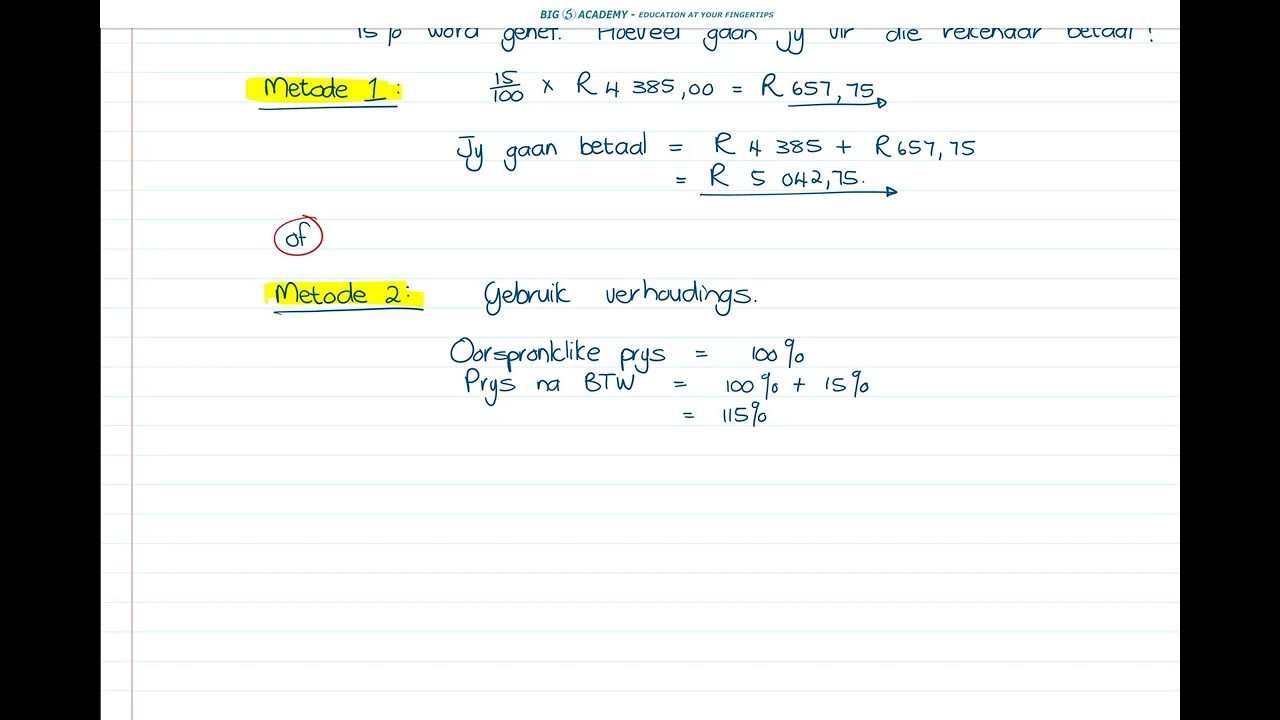 BIG 5 ACADEMY - EDUCATION AT YOUR FINGERTIPS
15% word gehef. Hoeveel gaan jy vir die rekenaar betaal?
Metode 1: 15/100 × R 4 385,00 = R 657,75
Jy gaan betaal = R 4 385 + R 657,75
= R 5 042,75.
of
Metode 2: Gebruik verhoudings.
Oorspronklike prys = 100%
Prys na BTW = 100% + 15%
= 115%